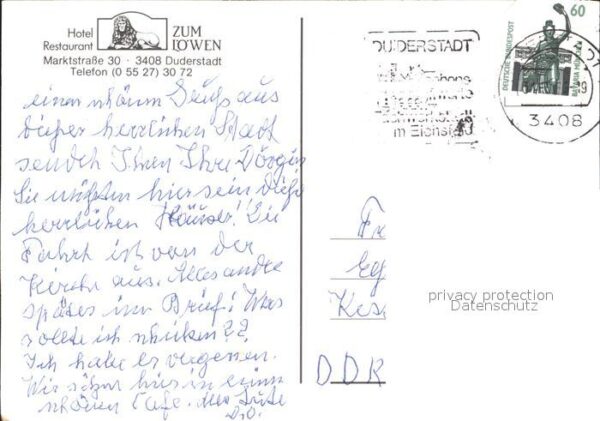 Hotel
Restaurant
ZUM
LÖWEN
Marktstraße 30 · 3408 Duderstadt
Telefon (0 55 27) 30 72
einen schönen Gruß aus
dieser herrlichen Stadt
sendet Ihnen Ihre
Sie müßten hier sein diese
herrlichen Häuser! Die
Fahrt ist von der
Kirche aus. Alles andre
später im Brief! Was
sollte ich schicken??
Ich habe es vergessen.
Wir sitzen hier in einem
schönen Cafe. Alles Gute
D.O.
DUDERSTADT
im Eichsfeld
60
DEUTSCHE BUNDESPOST
BAVARIA MÜNCHEN
3408
Fr
Kes
DDR
privacy protection
Datenschutz